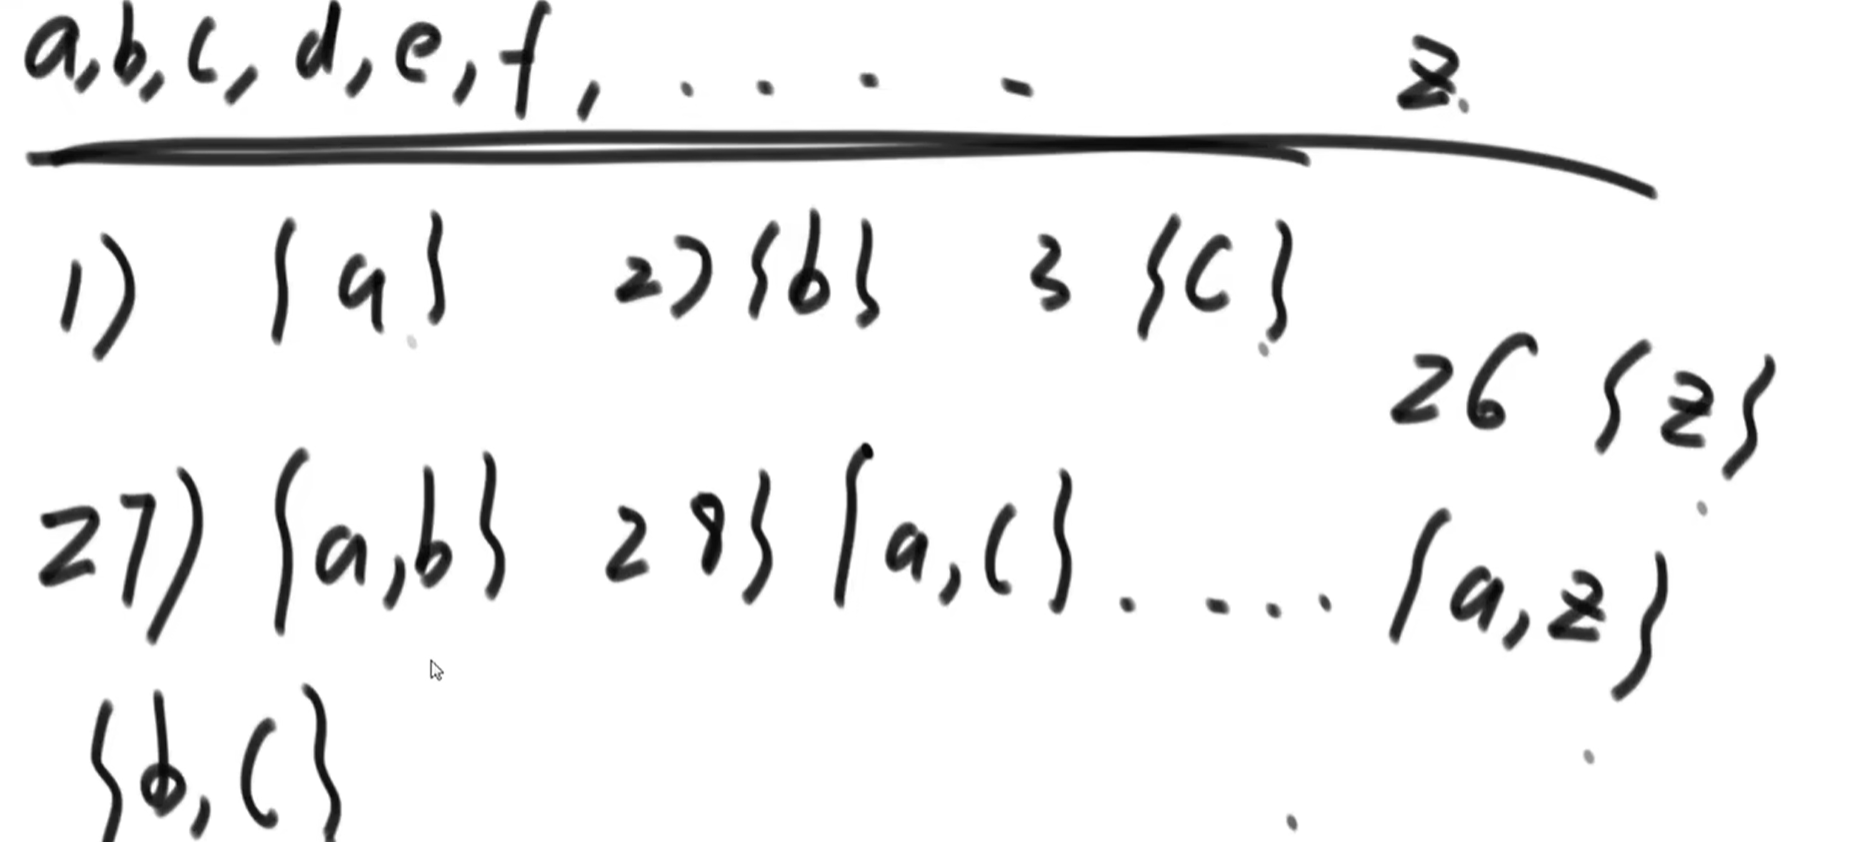 a, b, c, d, e, f, . . . . z.
1) {a} 2) {b} 3 {c}
26 {z}
27) {a,b} 28} {a,c} . . . . {a,z}
{b,c}